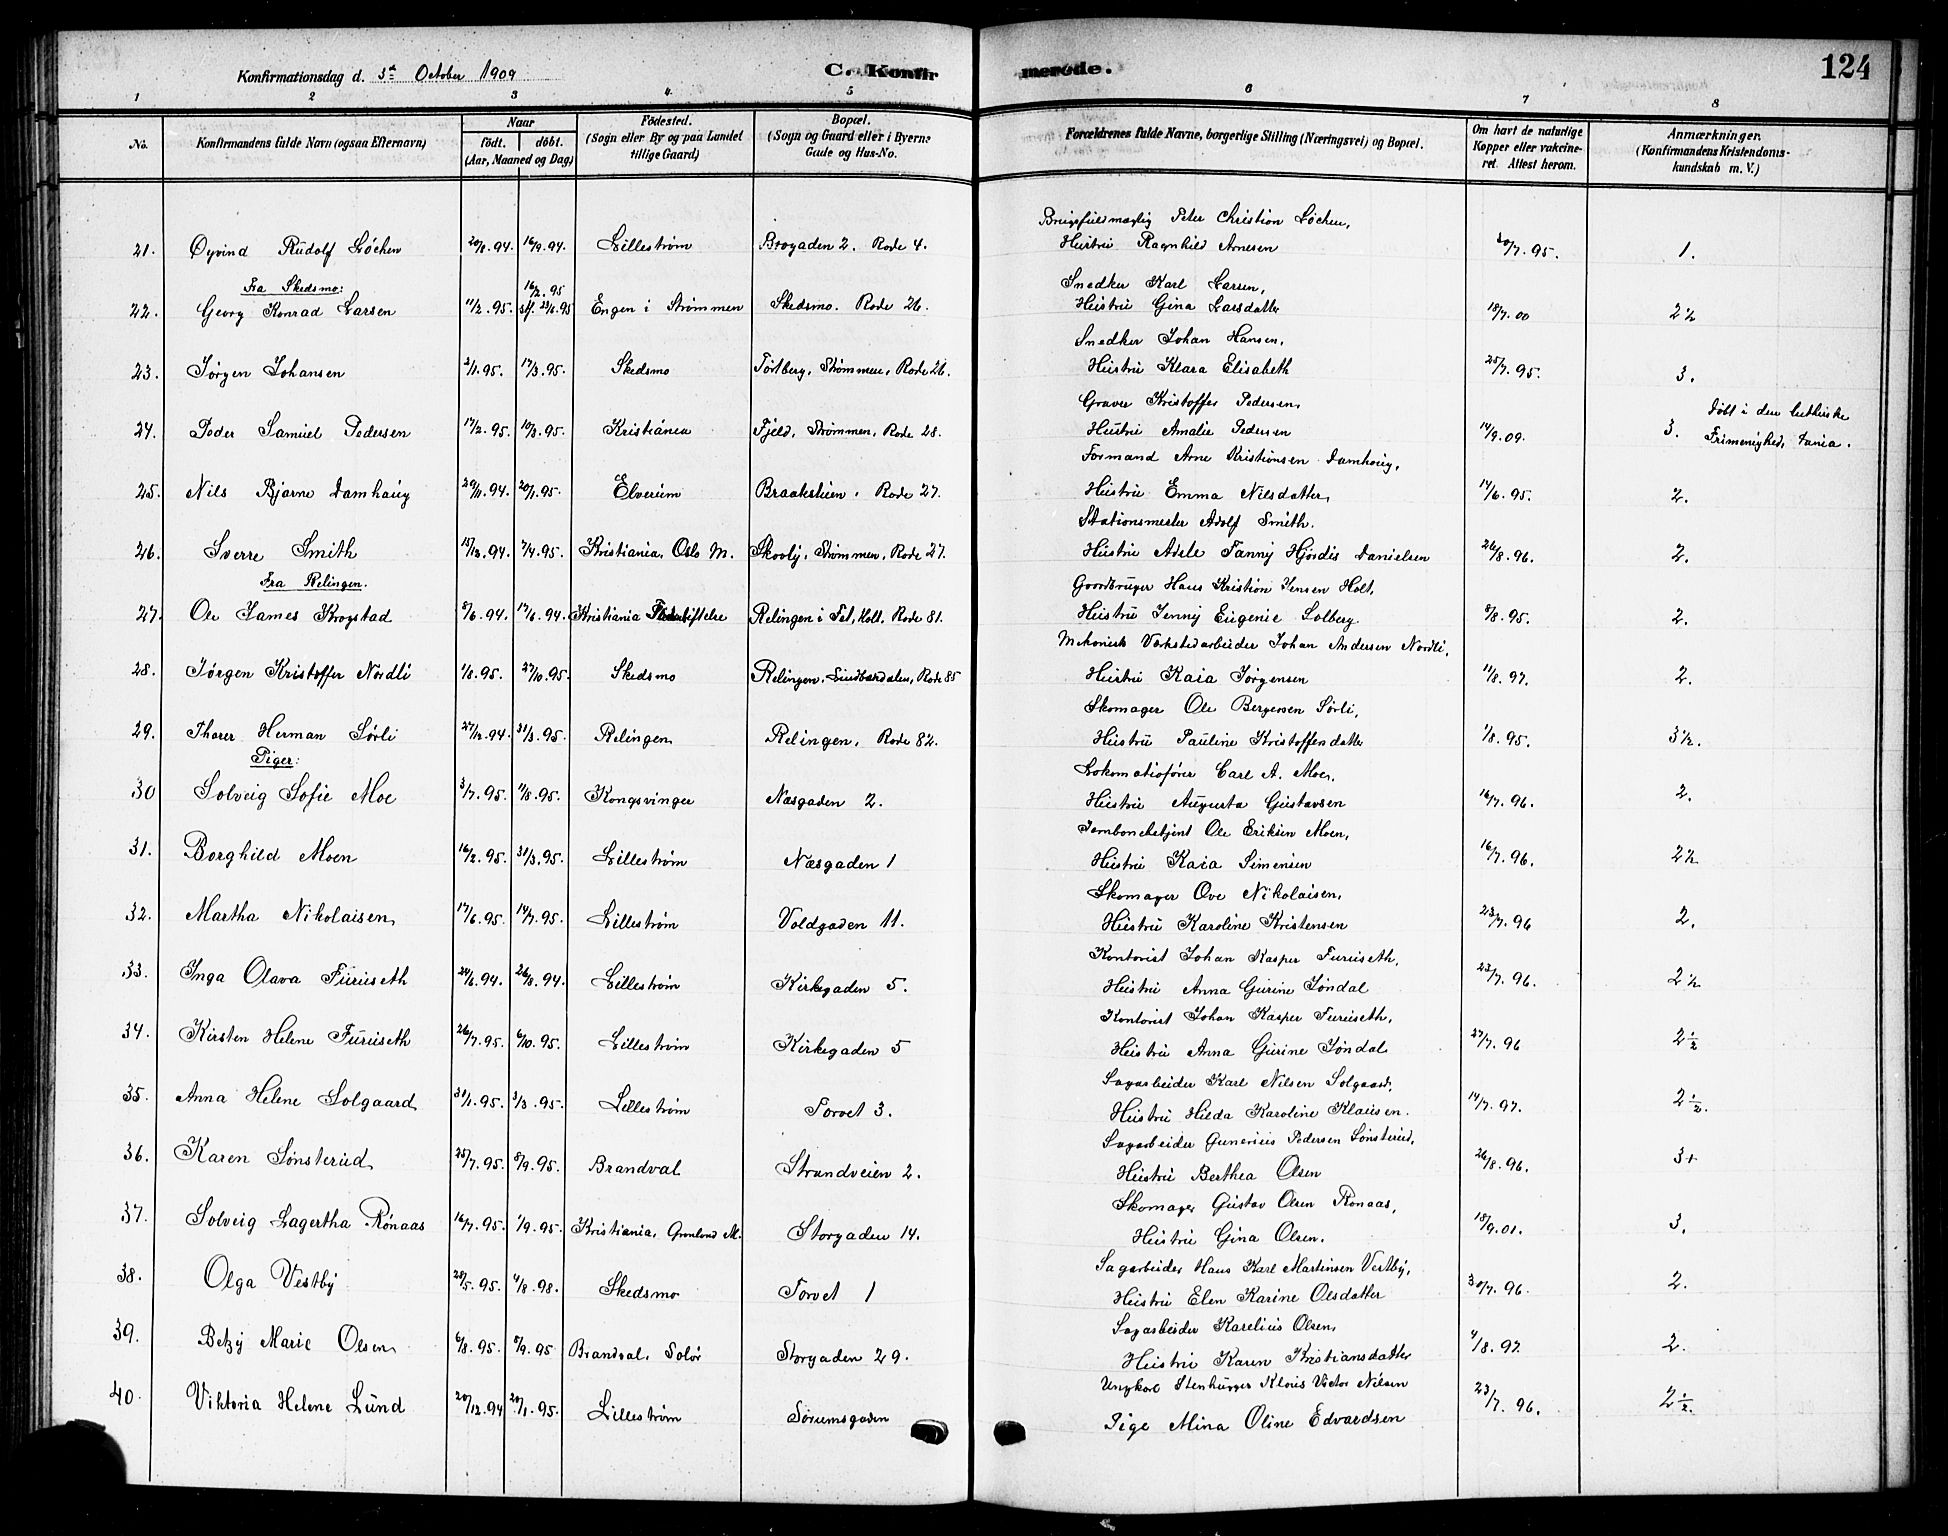 124
Konfirmationsdag d. 3die October 1909
C. Konfirmerede.
1 2 3 4 5 6 7 8
No. Konfirmandens fulde Navn (ogsaa Efternavn) Naar født. døbt. (Aar, Maaned og Dag) Fødested. (Sogn eller By og paa Landet tillige Gaard) Bopæl. (Sogn og Gaard eller i Byerne Gade og Hus-No. Forældrenes fulde Navne, borgerlige Stilling (Næringsvei) og Bopæl. Om havt de naturlige Kopper eller vakcineret. Attest herom. Anmærkninger. (Konfirmandens Kristendomskundskab m. V.)
Brugsfuldmægtig Peter Christian Løchen,
21. Øyvind Rudolf Løchen 20/8.94. 16/9.94. Lillestrøm Brogaden 2. Rode 4. Hustru Ragnhild Arnesen 30/7.95. 1.
Fra Skedsmo: 16/2.95 Snedker Karl Larsen,
22. Georg Konrad Larsen 11/2.95. Engen i Strømmen Skedsmo. Rode 26. Hustru Gina Larsdatter 18/7.00 2½
Snedker Johan Hansen,
23. Jørgen Johansen 2/1.95. 17/3.95. Skedsmo Tortberg, Strømmen, Rode 26. Hustru Klara Elisabeth 25/7.95. 3.
Graver Kristoffer Pedersen, Døbt i den lutherske
24. Peder Samuel Pedersen 17/2.95. 10/3.95. Kristiania Fjeld, Strømmen, Rode 28. Hustru Amalie Pedersen 14/9.09. 3. Frimenighed,
Formand Arne Kristiansen Damhaug,
25. Nils Bjarne Damhaug 29/11.94. 20/1.95. Elverum Braakstien, Rode 27. Hustru Emma Nilsdatter, 14/6.95. 2.
Stationsmester Adolf Smith.
26. Sverre Smith 13/12.94. 7/4.95. Kristiania, Oslo M. Skovly, Strømmen, Rode 27. Hustru Adele Fanny Hjørdis Danielsen 26/8.96. 2.
Fra Relingen. Gaardbruger Hans Kristian Jensen Holt,
27. Ole James Krogstad 8/6.94. 17/6.94. Kristiania Fødselsstiftelse Relingen i Fet, Holt, Rode 81. Hustru Jenny Eugenie Solberg. 8/8.95. 2.
Mekanisk Værkstedarbeider Johan Andersen Nordli,
28. Jørgen Kristoffer Nordli 1/8.95. 27/10.95. Skedsmo Relingen, Rode 85 Hustru Kaia Jørgensen 11/8.97. 2.
Skomager Ole Bergersen Sørli,
29. Thorer Herman Sørli 27/12.94. 31/3.95. Relingen, Relingen, Rode 82. Hustru Pauline Kristoffersdatter 1/8.95. 3½.
Piger: Lokomotivfører Carl A. Moe,
30 Solveig Sofie Moe 3/7.95. 11/8.95. Kongsvinger Næsgaden 2. Hustru Augusta Gustavsen 16/7.96. 2.
Jernbanebetjent Ole Eriksen Moen,
31. Borghild Moen 16/2.95. 31/3.95. Lillestrøm Næsgaden 1 Hustru Kaia Simensen 16/7.96. 2½
Skomager Ove Nikolaisen,
32. Martha Nikolaisen, 17/6.95. 14/7.95. Lillestrøm Voldgaden 11. Hustru Karoline Kristensen 23/7.96 2.
Kontorist Johan Kasper Furuseth,
33. Inga Olava Furuseth 24/6.94. 26/8.94. Lillestrøm Kirkegaden 5. Hustru Anna Gurine Jøndal 23/7.96. 2½
Kontorist Johan Kasper Furuseth,
34. Kirsten Helene Furuseth 26/7.95. 6/10.95. Lillestrøm Kirkegaden 5 Hustru Anna Gurine Jøndal 27/7.96 2½
Sagarbeider Karl Nilsen Solgaard,
35. Anna Helene Solgaard, 31/1.95. 3/3.95. Lillestrøm Torvet 3. Hustru Hilda Karoline Klausen. 14/7.97. 2½.
Sagarbeider Gunerius Pedersen Sønsterud,
36. Karen Sønsterud, 25/7.95. 8/9.95. Brandval Strandveien 2. Hustru Berthea Olsen 26/8.96. 3+
Skomager Gustav Olsen Rønaas,
37. Solveig Lagertha Rønaas 16/7.95. 1/9.95. Kristiania, Grønland M. Storgaden 14. Hustru Gina Olsen. 18/9.01. 3.
Sagarbeider Hans Karl Martinsen Vestby,
38. Olga Vestby 28/5.95. 4/8.98. Skedsmo Torvet 1 Hustru Elen Karine Olsdatter 30/7.96. 2.
Sagarbeider Karelius Olsen,
39. Betzy Marie Olsen, 6/8.95. 8/9.95 Brandval, Solør Storgaden 29. Hustru Karen Kristiansdatter 4/8.97. 2.
Ungkarl Stenhugger Klaus Victor Nilsen
40. Viktoria Helene Lund 20/12.94 20/1.95. Lillestrøm Sørumsgaden Pige Mina Oline Edvardsen 23/7.96. 2½.